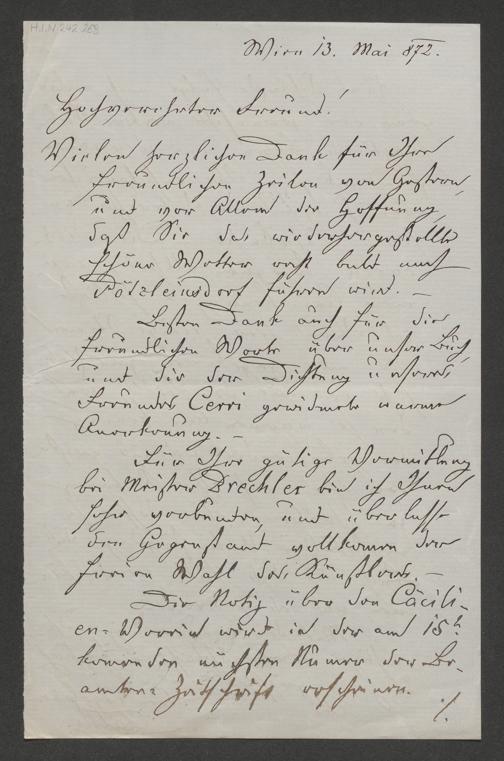 H.I.N. 242.268
Wien 13. Mai 872.
Hochverehrter Freund!
Vielen herzlichen Dank für Ihre
freundlichen Zeilen von Gestern,
und vor Allem der Hoffnung,
daß Sie das wiederhergestellte
schöne Wetter recht bald nach
Pötzleinsdorf führen wird. –
Besten Dank auch für die
freundlichen Worte über unser Buch,
und die der Dichtung unseres
Freundes Cerri gewidmete warme
Anerkennung. –
Für Ihre gütige Vermittlung
bei Meister Drechsler bin ich Ihnen
sehr verbunden, und überlasse
den Gegenstand vollkomen der
freien Wahl des Künstlers. –
Die Notiz über den Cäcili-
en-Verein wird in der am 15t.
komenden nächsten Numer der Be-
amten-Zeitschrift erscheinen.
./.